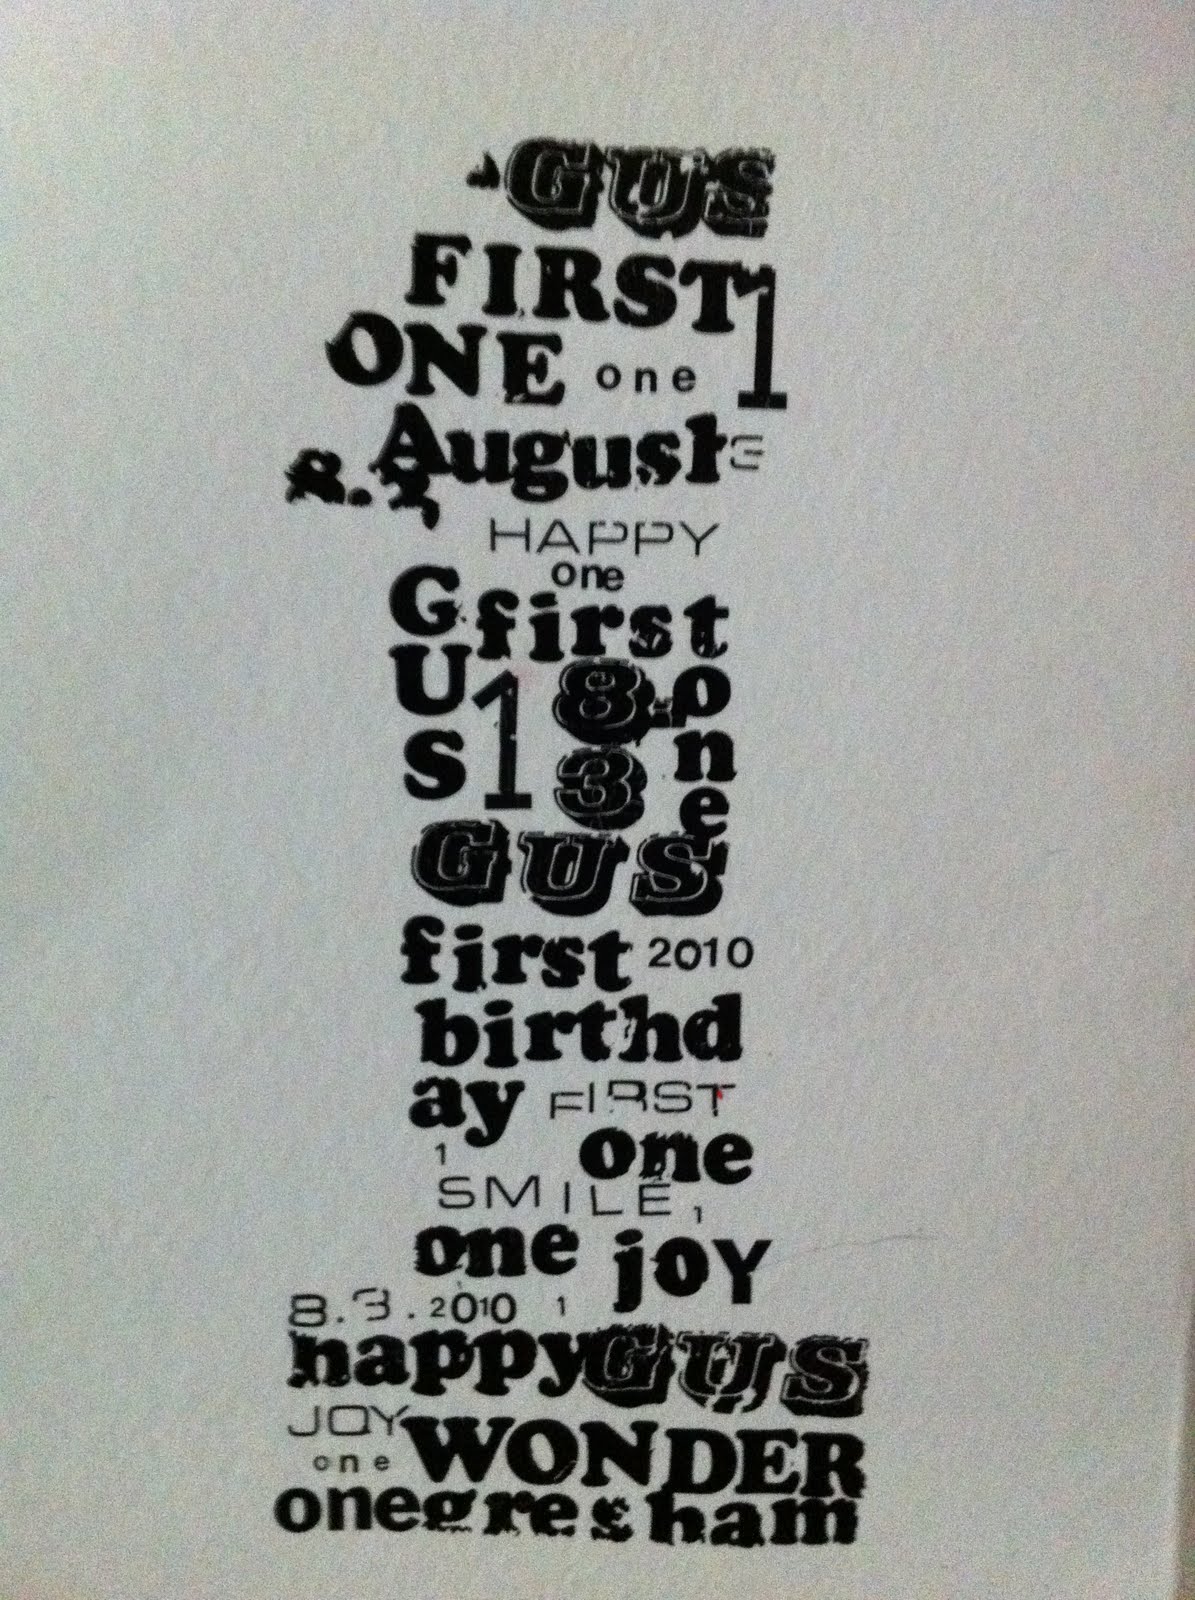 GUS
FIRST 1
ONE one
August 3
8.3
HAPPY
one
GUS first
1 8 one
3
GUS
first 2010
birthd
ay FIRST
1 one
SMILE 1
one joY
8.3.2010 1
happy GUS
JOY
one WONDER
one gresham